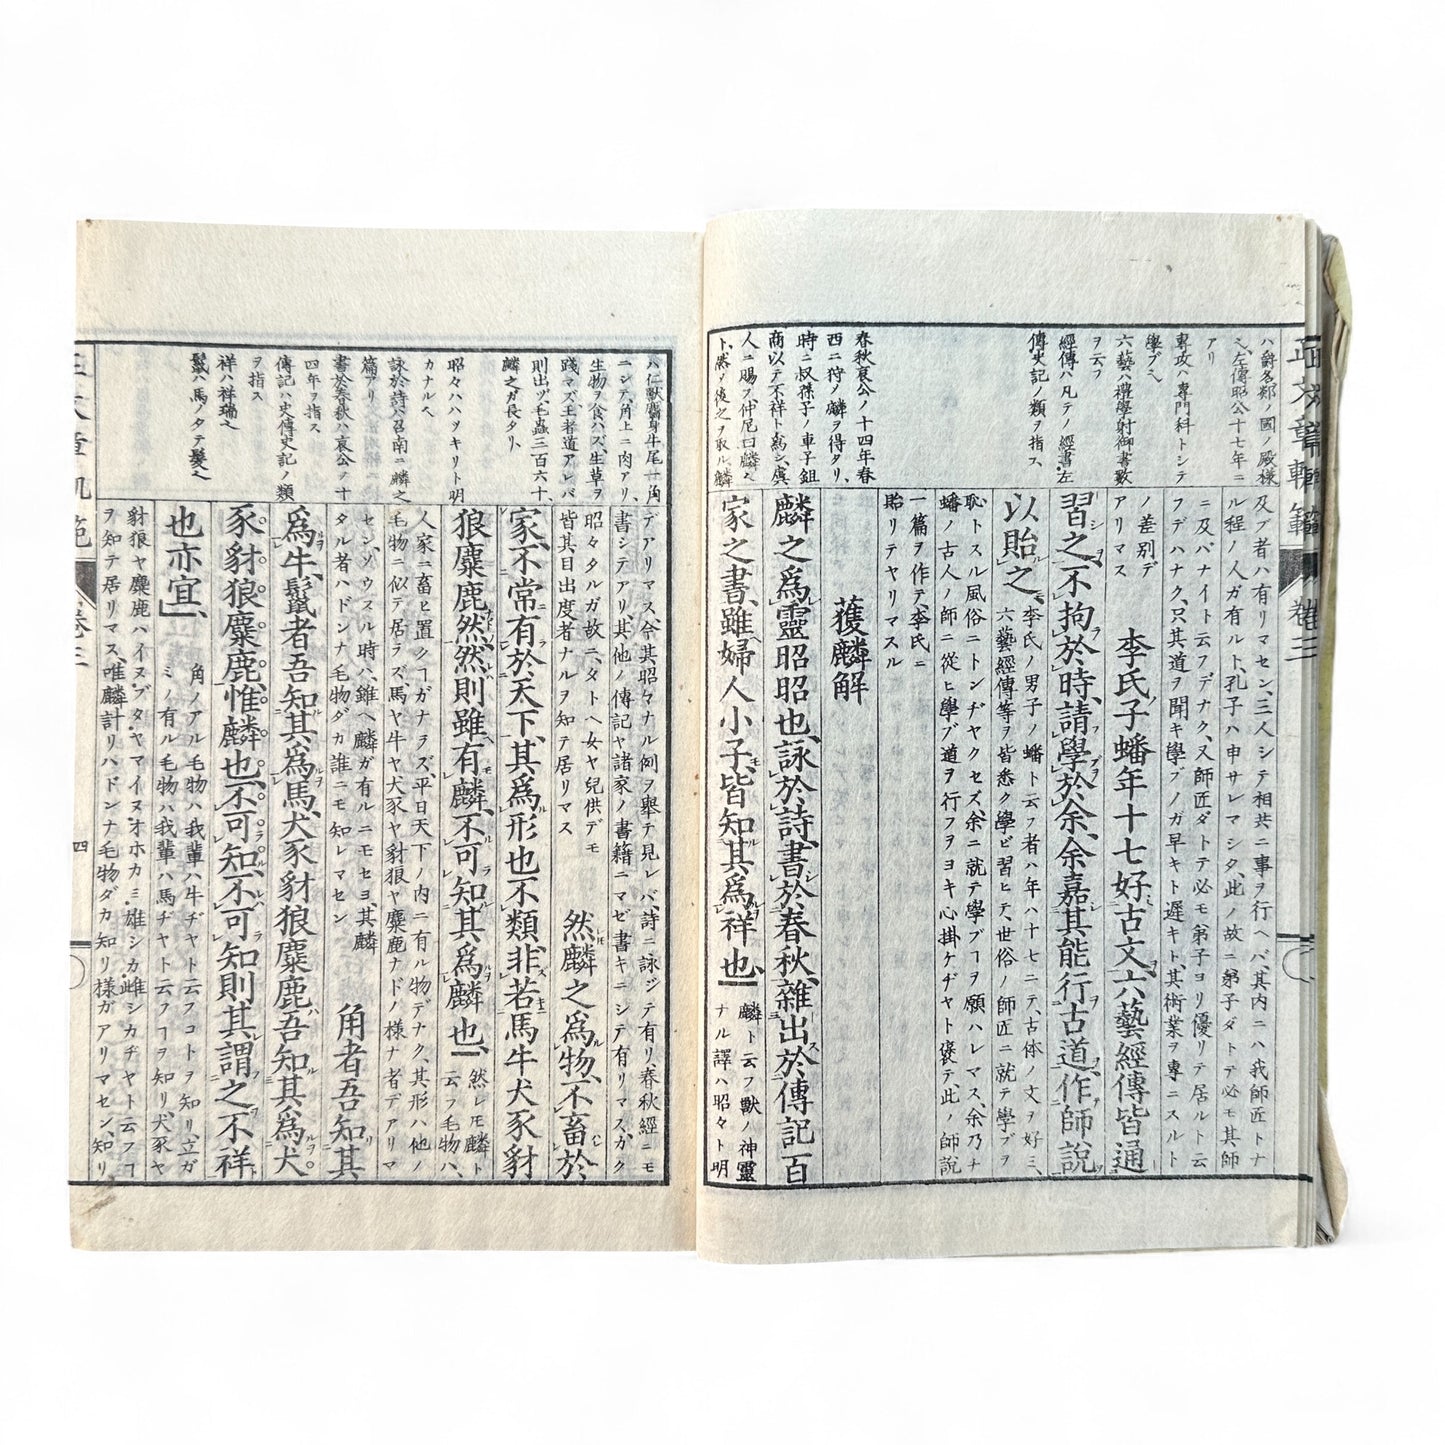 正文章軌範
卷三
ハ爵名郯ノ國ノ殿様
左傳昭公十七年ニ
アリ
専攻ハ専門科トシテ
學ブ
六藝ハ禮樂射御書數
ヲ云フ
經傳ハ凡テノ經書左
傳史記ノ類ヲ指ス
春秋哀公ノ十四年春
西ニ狩ノ麟ヲ得タリ、
時ニ叔孫子ノ車子鉏
商以テ不祥ト為シ、虞
人ニ賜フ、仲尼曰麟
ト、然ノ後之ヲ取ル、麟
及ブ者ハ有リマセン、三人シテ相共ニ事ヲ行ヘバ、其内ニハ我師匠トナ
ル程ノ人ガ有ルト、孔子ハ申サレマシタ、此ノ故ニ弟子ダトテ必モ其師
ニ及バナイト云フデナク、又師匠ダトテ必モ弟子ヨリ優リテ居ルト云
フデハナク、只其道ヲ聞キ學ブノガ早キト遲キト、其術業ヲ専ニスルト
ノ差別デ
アリマス
李氏子蟠年十七好古文六藝經傳皆通
習之、不拘於時、請學於余、余嘉其能行古道、作師説
以貽之、
李氏ノ男子ノ蟠ト云フ者ハ年ハ十七ニテ、古体ノ文ヲ好ミ、
六藝經傳等ヲ皆悉ク學ビ習ヒテ、世俗ノ師匠ニ就テ學ブヲ
恥トスル風俗ニトンヂヤクセズ、余ニ就テ學ブヿヲ願ハレマス、余乃チ
蟠ノ古人ノ師ニ從ヒ學ブ道ヲ行フヲヨキ心掛ケヂヤト褒テ、此ノ師説
一篇ヲ作テ李氏ニ
貽リテヤリマスル
獲麟解
麟之爲靈昭昭也、詠於詩、書於春秋、雜出於傳記百
家之書、雖婦人小子、皆知其爲祥也、
麟ト云フ獸ノ神靈
ナル譯ハ昭々ト明
ハ仁獸麕身牛尾一角
ニシテ、角上ニ肉アリ、
生物ヲ食ハズ、生草ヲ
踐マズ、王者道アレバ
則出ヅ、毛蟲三百六十、
麟之ガ長タリ、
昭々ハハツキリト明
カナル
詠於詩ハ召南ニ麟之
篇アリ
書於春秋ハ哀公ノ十
四年ヲ指ス
傳記ハ史傳史記ノ類
ヲ指ス
祥ハ祥瑞
鬣ハ馬ノタテ髮
デアリマス、今其昭々ナル例ヲ擧テ見レバ、詩ニ詠ジテ有リ、春秋經ニモ
書シテアリ、其他ノ傳記ヤ諸家ノ書籍ニマゼ書キニシテ有リマス、カク
昭々タルガ故ニ、タトヘ女ヤ兒供デモ
皆其目出度者ナルヲ知テ居リマス
然麟之爲物、不畜於
家、不常有於天下、其爲形也不類、非若馬牛犬豕豺
狼麋鹿然、然則雖有麟、不可知其爲麟也、
然レモ麟ト
云フ毛物ハ、
人家ニ畜ヒ置クヿガナラズ、平日天下ノ内ニ有ル物デナク、其形ハ他ノ
毛物ニ似テ居ラズ、馬ヤ牛ヤ犬豕ヤ豺狼ヤ麋鹿ナドノ様ナ者デアリマ
セン、ソウスル時ハ、雖ヘ麟ガ有ルニモセヨ、其麟
タル者ハドンナ毛物ダカ誰ニモ知レマセン
角者吾知其
爲牛、鬣者吾知其爲馬、犬豕豺狼麋鹿吾知其爲犬
豕豺狼麋鹿、惟麟也、不可知、不可知則其謂之不祥
也亦宜、
角ノアル毛物ハ我輩ハ牛ヂヤト云フコトヲ知リ、立ガ
ミノ有ル毛物ハ我輩ハ馬ヂヤト云フヿヲ知リ、犬豕ヤ
豺狼ヤ麋鹿ハイヌ、ブタ、ヤマイヌ、オホカミ、雄シカ、雌シカヂヤト云フヿ
ヲ知テ居リマス、唯麟計リハドンナ毛物ダカ知リ様ガアリマセン、知リ
卷三
四